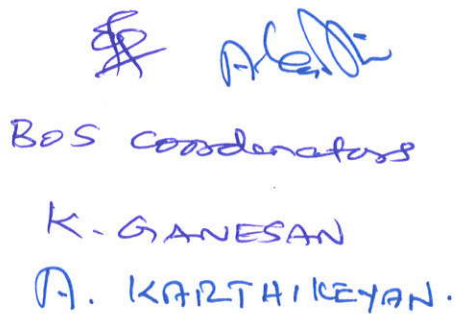 BOS coordenators
K. GANESAN
A. KARTHIKEYAN.